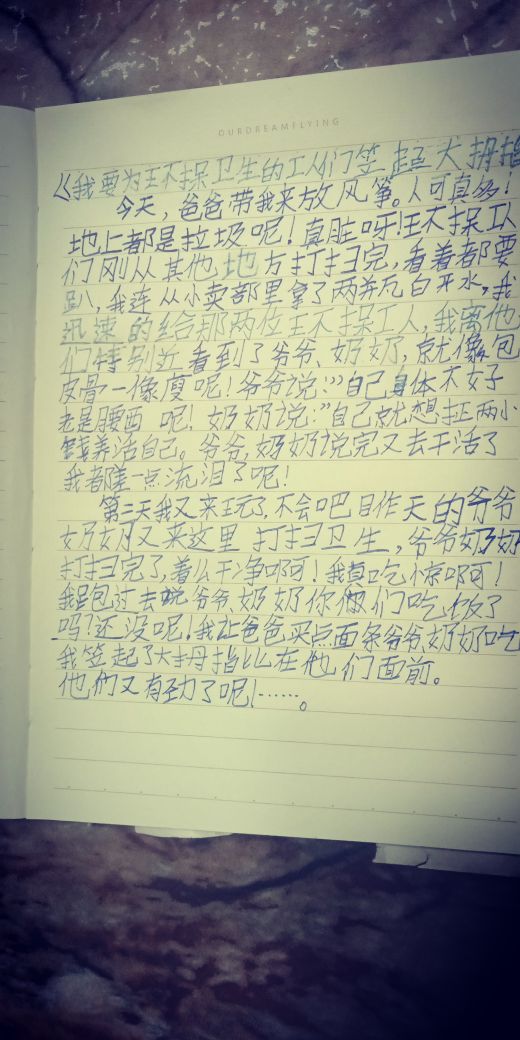 OURDREAMFLYING
《我要为环操卫生的工人们竖起大拇指
今天，爸爸带我来放风筝。人可真多！
地上都是垃圾呢！真脏呀！环操工人
们刚从其他地方打扫完，看着都要
趴，我连从小卖部里拿了两并凡白开水，我
迅速的给那两位环操工人，我离他
们特别近看到了爷爷、奶奶，京就像包
皮骨一像廋呢！爷爷说：”自己身体不好
老是腰西 呢！奶奶说：”自己就想扗两小
钱养活自己。爷爷，奶奶说完又去干活了
我都差一点流泪了呢！
第二天我又来玩了，不会吧目作天的爷爷
奶奶又来这里 打扫卫生，爷爷奶奶
打扫完了，着么干净啊可！我真吃惊啊可！
我跑过去说爷爷、奶奶你们吃饭了
吗？还没呢！我让爸爸买点面条爷爷奶奶吃
我竖起了大拇指比在他们面前。
他们又有劲了呢！……。